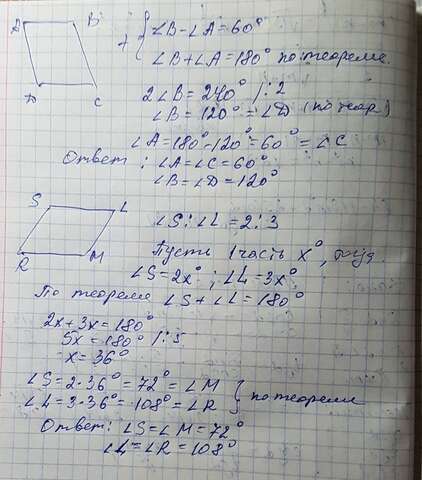 A B
D C
+ { ∠B-∠A=60°
∠B+∠A=180° по теореме.
2∠B=240° /:2
∠B=120°=∠D (по теор)
∠A=180°-120°=60°=∠C
Ответ: ∠A=∠C=60°
∠B=∠D=120°
S L
R M
∠S:∠L=2:3
Пусть 1 часть x°, тогда
∠S=2x°; ∠L=3x°
По теореме ∠S+∠L=180°
2x+3x=180°
5x=180° /:5
x=36°
∠S=2·36°=72°=∠M
∠L=3·36°=108°=∠R } по теореме
Ответ: ∠S=∠M=72°
∠L=∠R=108°